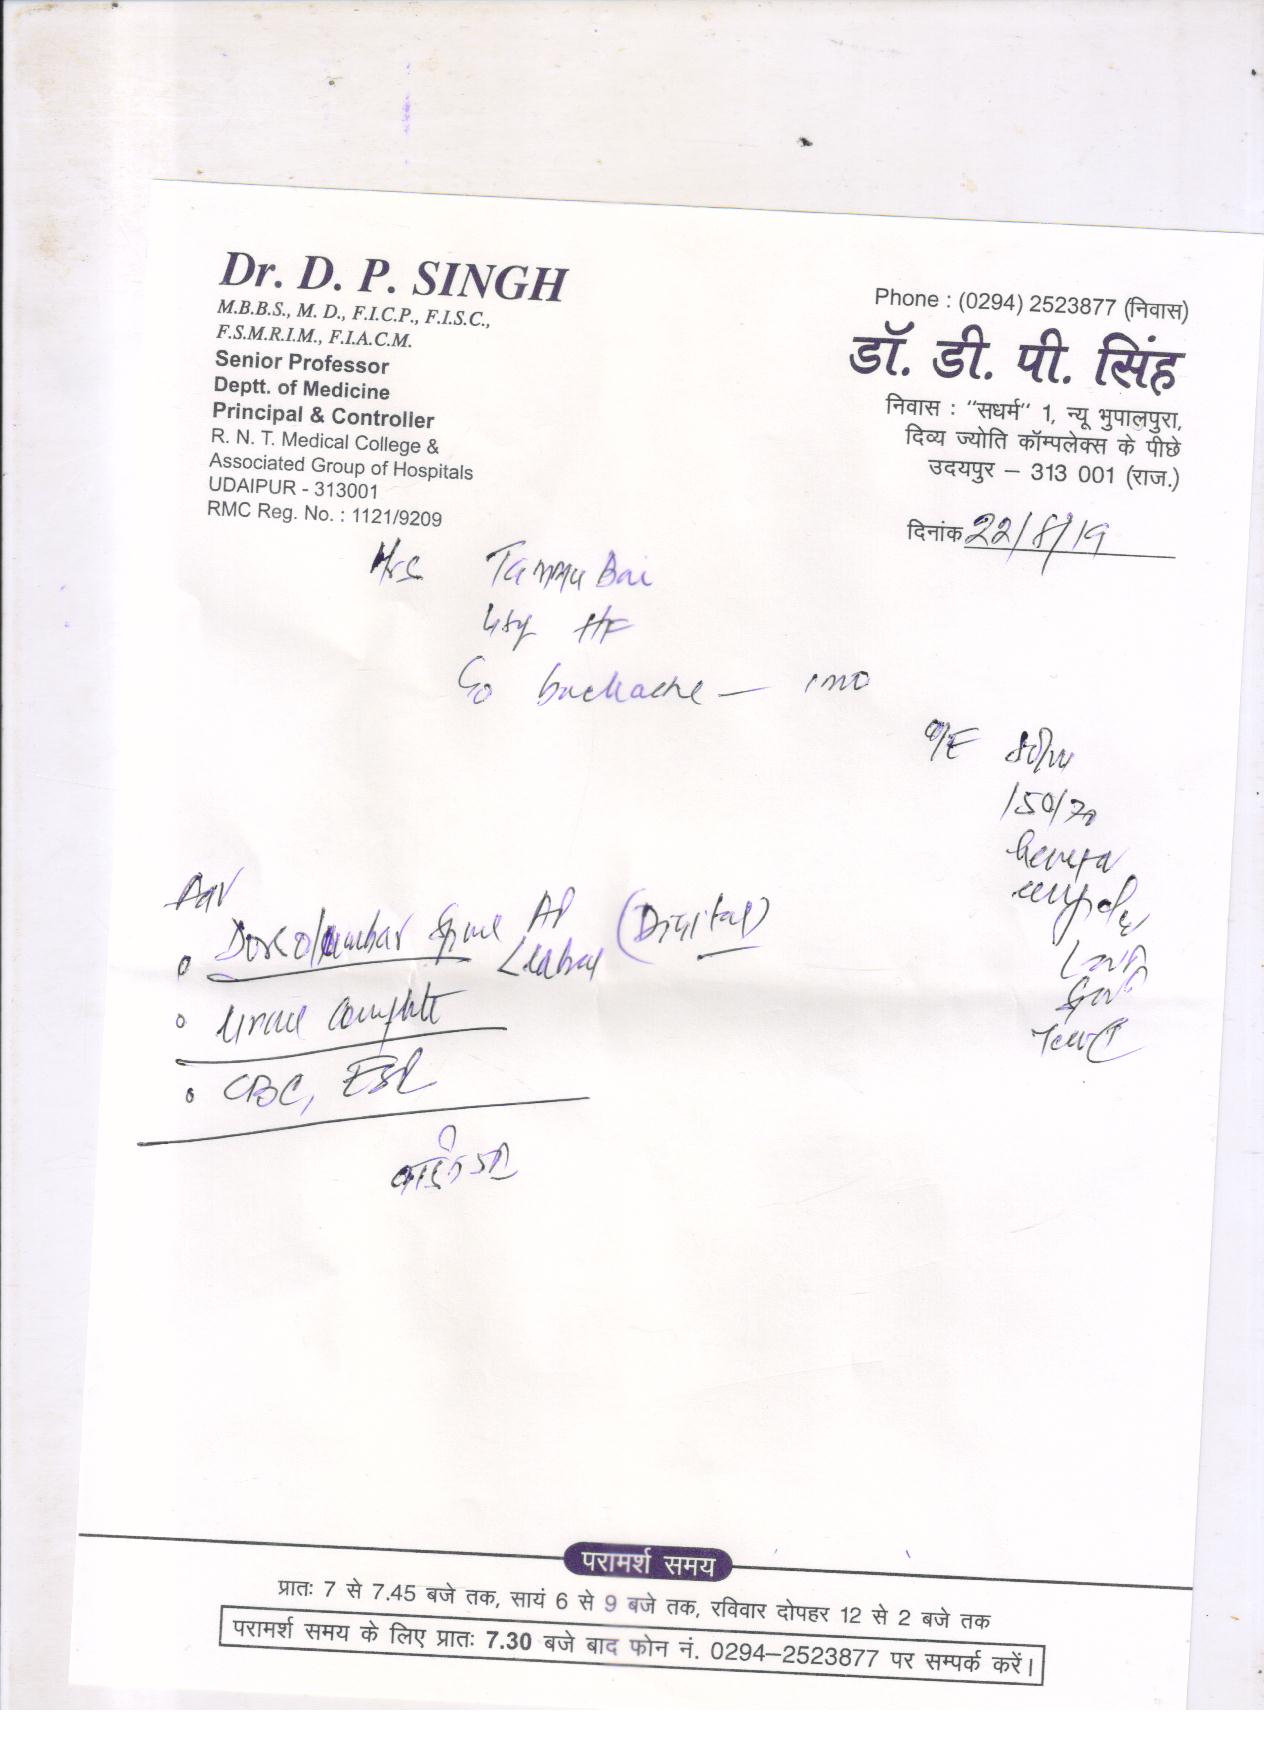 Dr. D. P. SINGH
M.B.B.S., M. D., F.I.C.P., F.I.S.C.,
F.S.M.R.I.M., F.I.A.C.M.
Senior Professor
Deptt. of Medicine
Principal & Controller
R. N. T. Medical College &
Associated Group of Hospitals
UDAIPUR - 313001
RMC Reg. No. : 1121/9209
Phone : (0294) 2523877 (निवास)
डॉ. डी. पी. सिंह
निवास : "सधर्म" 1, न्यू भुपालपुरा,
दिव्य ज्योति कॉम्पलेक्स के पीछे
उदयपुर – 313 001 (राज.)
दिनांक 22/8/19
Mrs Bai
backache —
O/E
150/70
Adv
Dorsolumbar Spine AP (Digital)
Lateral
Urine complete
CBC, ESR
परामर्श समय
प्रातः 7 से 7.45 बजे तक, सायं 6 से 9 बजे तक, रविवार दोपहर 12 से 2 बजे तक
परामर्श समय के लिए प्रातः 7.30 बजे बाद फोन नं. 0294–2523877 पर सम्पर्क करें।